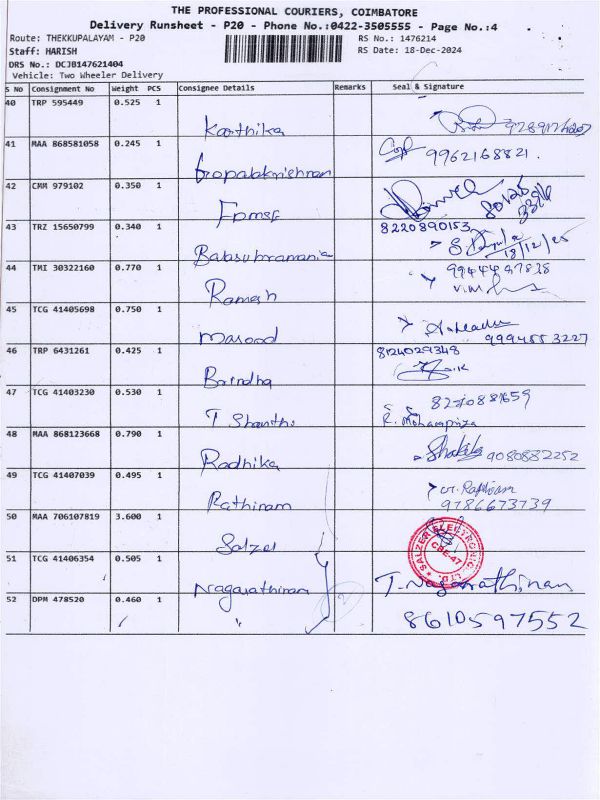 THE PROFESSIONAL COURIERS, COIMBATORE
Delivery Runsheet - P20 - Phone No.:0422-3505555 - Page No.:4
Route: THEKKUPALAYAM - P20
RS No.: 1476214
Staff: HARISH
RS Date: 18-Dec-2024
DRS No.: DCJB147621404
Vehicle: Two Wheeler Delivery
S No Consignment No Weight PCS Consignee Details Remarks Seal & Signature
40 TRP 595449 0.525 1
Karthika
41 MAA 868581058 0.245 1
9962168821.
Gopalakrishnan
42 CMM 979102 0.350 1
43 TRZ 15650799 0.340 1
8220890153
Balasubramania
44 TMI 30322160 0.770 1
Ramesh
45 TCG 41405698 0.750 1
Masood
9994553227
46 TRP 6431261 0.425 1
8124029348
Brindha
47 TCG 41403230 0.530 1
T. Shanthi
48 MAA 868123668 0.790 1
Radhika
9080882252
49 TCG 41407039 0.495 1
Rathinam
9786673739
50 MAA 706107819 3.600 1
Salzer
SALZER ELECTRONICS LTD.
CBE-47
51 TCG 41406354 0.505 1
Nagarathinam
T. Nagarathinam
52 DPM 478520 0.460 1
"
8610597552